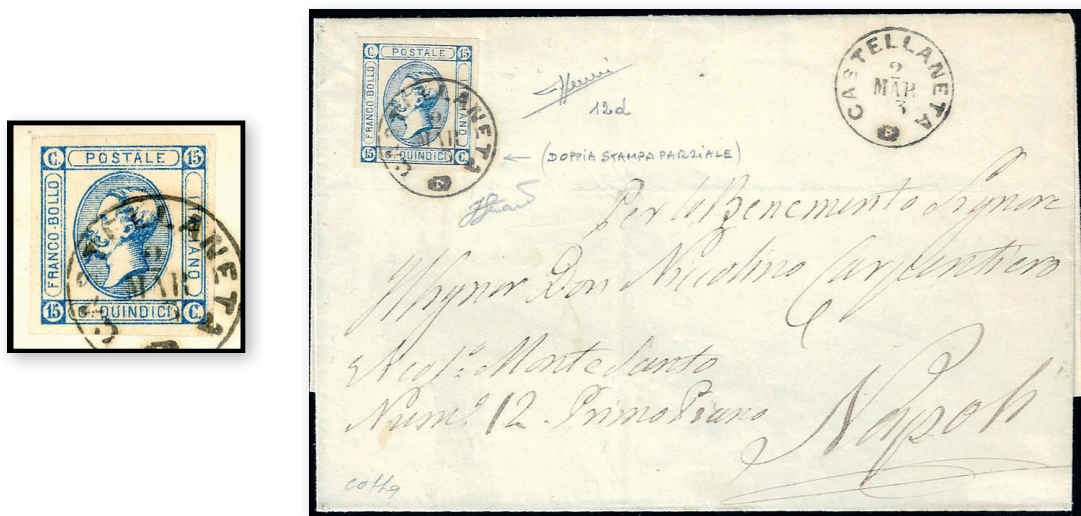 C. POSTALE 15
FRANCO-BOLLO
ITALIANO
15 C. QUINDICI C.
CASTELLANETA
2
MAR
C. POSTALE 15
FRANCO-BOLLO
ITALIANO
15 C. QUINDICI C.
CASTELLANETA
2
MAR
12d
(DOPPIA STAMPA PARZIALE)
CASTELLANETA
2
MAR
3
Per lo Benemerito Signore
Don Nicolino Argentiero
Monte Santo
Num.º 12 Primo Piano
Napoli